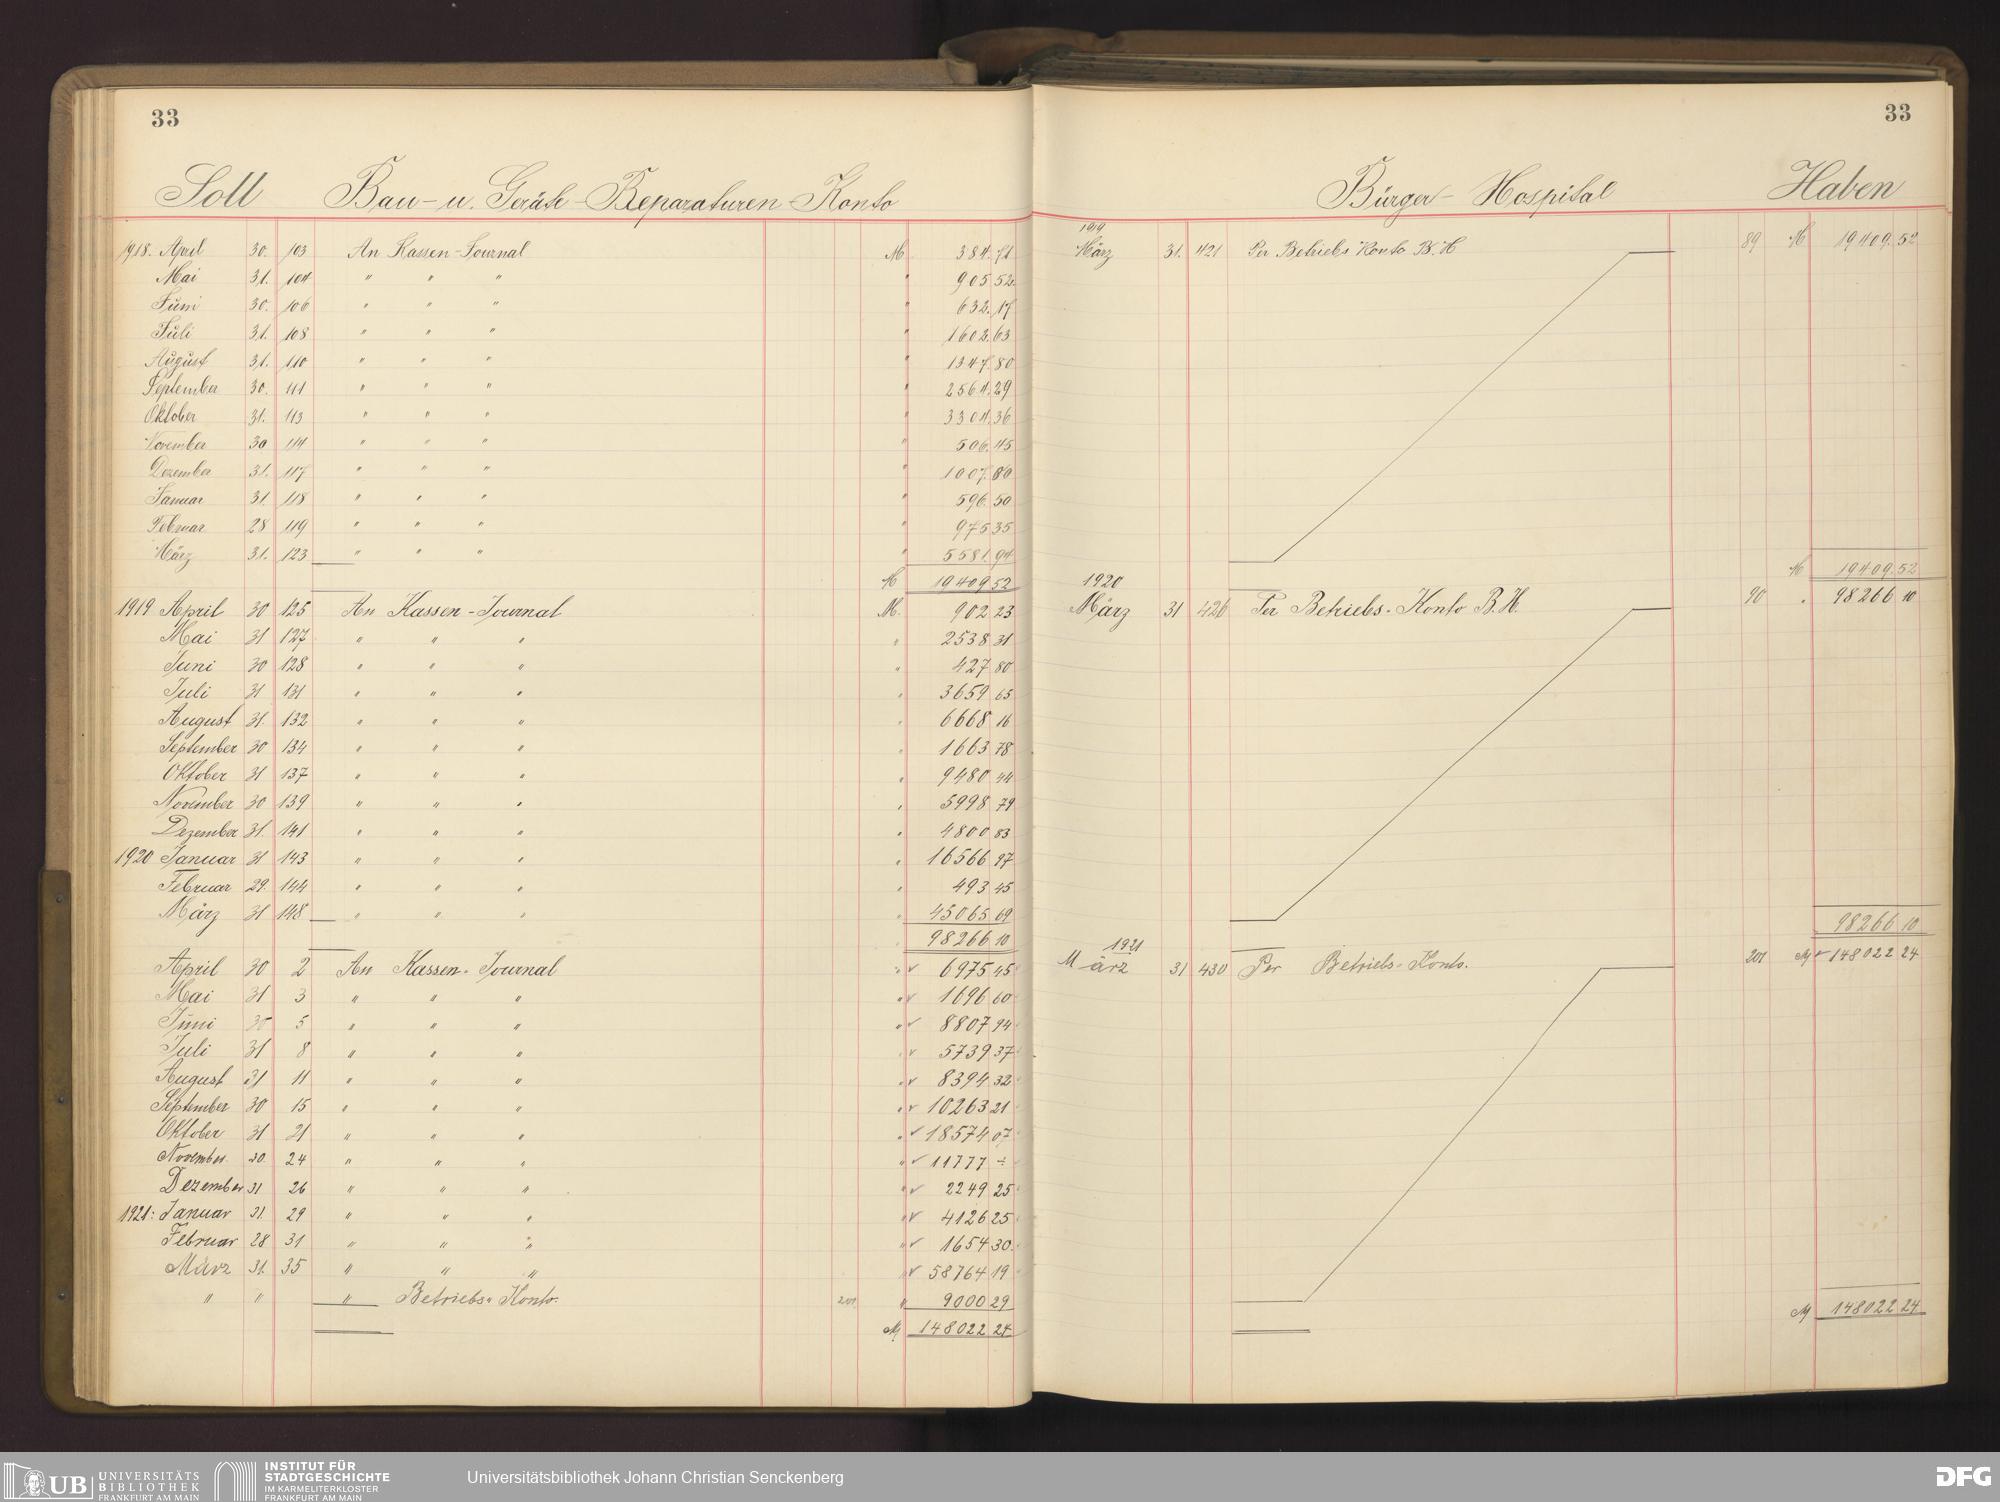 33
Soll Bau- u. Geräte-Reparaturen-Konto
1918. April 30. 103 An Kassen-Journal M 384.71
Mai 31. 104 " " " " 905.52
Juni 30. 106 " " " " 632.17
Juli 31. 108 " " " " 1602.63
August 31. 110 " " " " 1347.80
September 30. 111 " " " " 2564.29
Oktober 31. 113 " " " " 3304.36
November 30 114 " " " " 506.45
Dezember 31. 117 " " " " 1007.80
Januar 31 118 " " " " 596.50
Februar 28 119 " " " " 975 35
März 31. 123 " " " " 5581.94
M 19409 52
1919 April 30 125 An Kassen-Journal M. 902 23
Mai 31 127 " " " " 2538 31
Juni 30 128 " " " " 427 80
Juli 31 131 " " " " 3659 65
August 31. 132 " " " " 6668 16
September 30 134 " " " " 1663 78
Oktober 31 137 " " " " 9480 44
November 30 139 " " " " 5998 79
Dezember 31. 141 " " " " 4800 83
1920 Januar 31 143 " " " " 16566 97
Februar 29. 144 " " " " 493 45
März 31 148 " " " " 45065 69
98266 10
April 30 2 An Kassen-Journal " 6975 45
Mai 31 3 " " " " 1696 60
Juni 30 5 " " " " 8807 94
Juli 31 8 " " " " 5739 37
August 31 11 " " " " 8394 32
September 30 15 " " " " 10263 21
Oktober 31 21 " " " " 18574 07
November. 30. 24 " " " " 11777 ÷
Dezember 31 26 " " " " 2249 25
1921: Januar 31. 29 " " " " 4126 25
Februar 28 31 " " " " 1654 30
März 31. 35 " " " " 58764 19
" " " Betriebs-Konto. 201 " 9000 29
M 148022 24
33
Bürger-Hospital Haben
1919
März 31. 421 Per Betriebs Konto B.H 89 M 19409.52
M 19409.52
1920
März 31 426 Per Betriebs-Konto B.H. 90 " 98266 10
98266 10
1921
März 31 430 Per Betriebs-Konto. 201 M 148022 24
M 148022 24
UB UNIVERSITÄTS
BIBLIOTHEK
FRANKFURT AM MAIN
INSTITUT FÜR
STADTGESCHICHTE
IM KARMELITERKLOSTER
FRANKFURT AM MAIN
Universitätsbibliothek Johann Christian Senckenberg
DFG